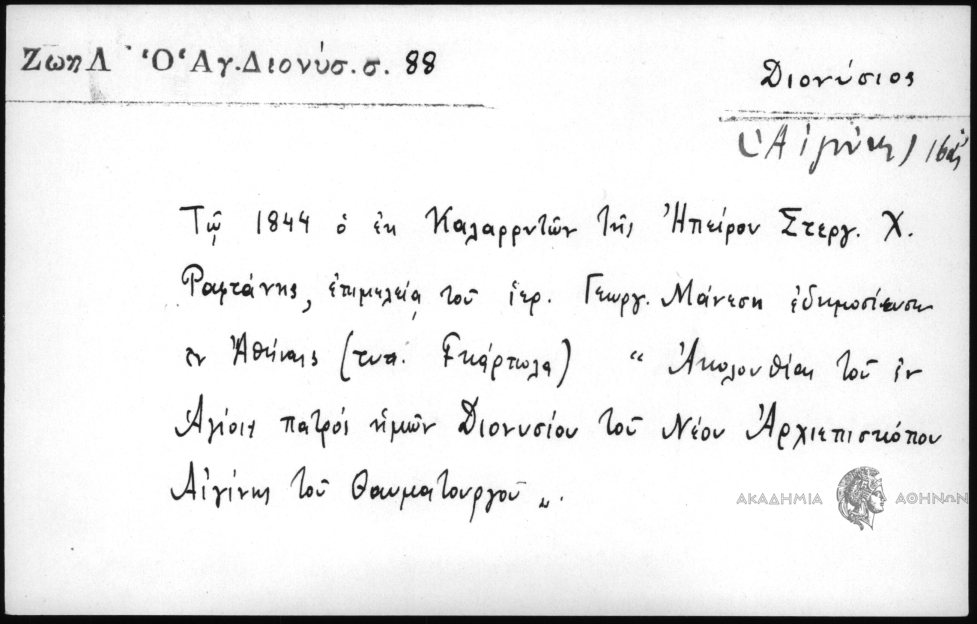 Ζωη Λ Ὁ Ἁγ. Διονύσ. σ. 88
Διονύσιος
(Αἰγίνης) 16ος
Τῷ 1844 ὁ ἐκ Καλαρρυτῶν τῆς Ἠπείρου Στεργ. Χ.
Ραφτάνης, ἐπιμελείᾳ τοῦ ἱερ. Γεωργ. Μάνεση ἐδημοσίευσε
ἐν Ἀθήναις (τυπ. Γκάρπολα) “ Ἀκολουθίαν τοῦ ἐν
Ἁγίοις πατρός ἡμῶν Διονυσίου τοῦ Νέου Ἀρχιεπισκόπου
Αἰγίνης τοῦ Θαυματουργοῦ „.
ΑΚΑΔΗΜΙΑ ΑΘΗΝΩΝ